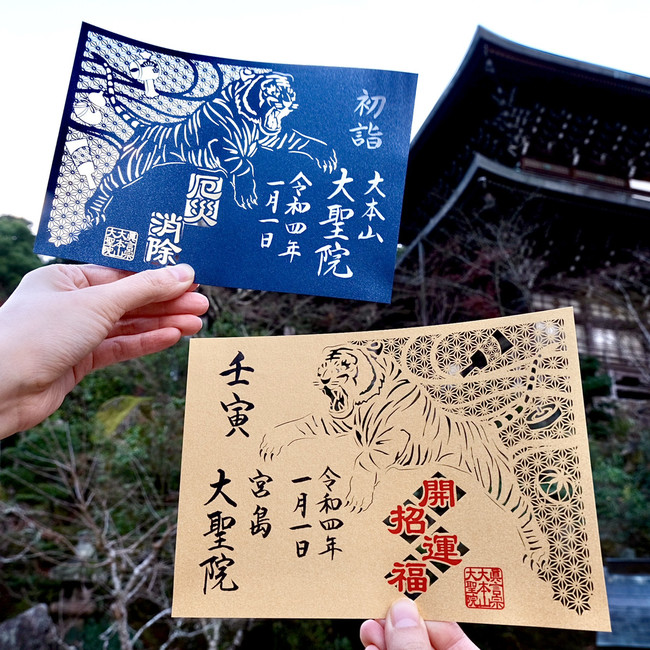 初詣
大本山
大聖院
令和四年
一月一日
厄災
消除
眞言宗
大本山
大聖院
壬寅
令和四年
一月一日
宮島
大聖院
開運
招福
眞言宗
大本山
大聖院